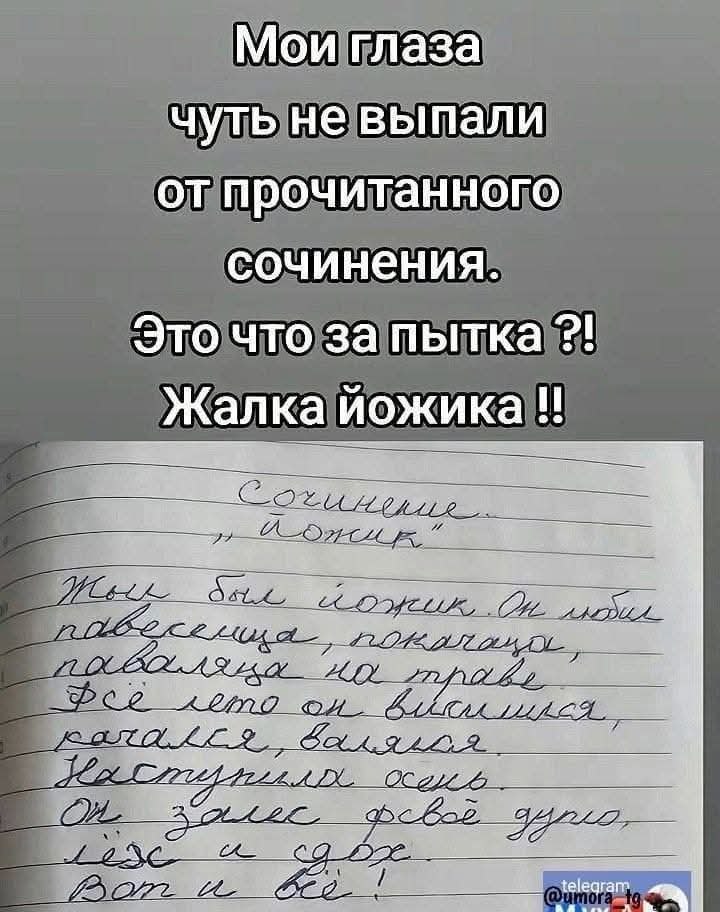 Мои глаза
чуть не выпали
от прочитанного
сочинения.
Это что за пытка ?!
Жалка йожика !!
Сочинение.
„Йожик"
Жыл был йожик. Он любил
павеселица, покачаца,
паваляца на траве
Фсё лето он висилился,
качался, валялся.
Наступила осень.
Он залес фсвоё дупло,
лёг и сдох.
Вот и всё!
telegram
@umora_tg